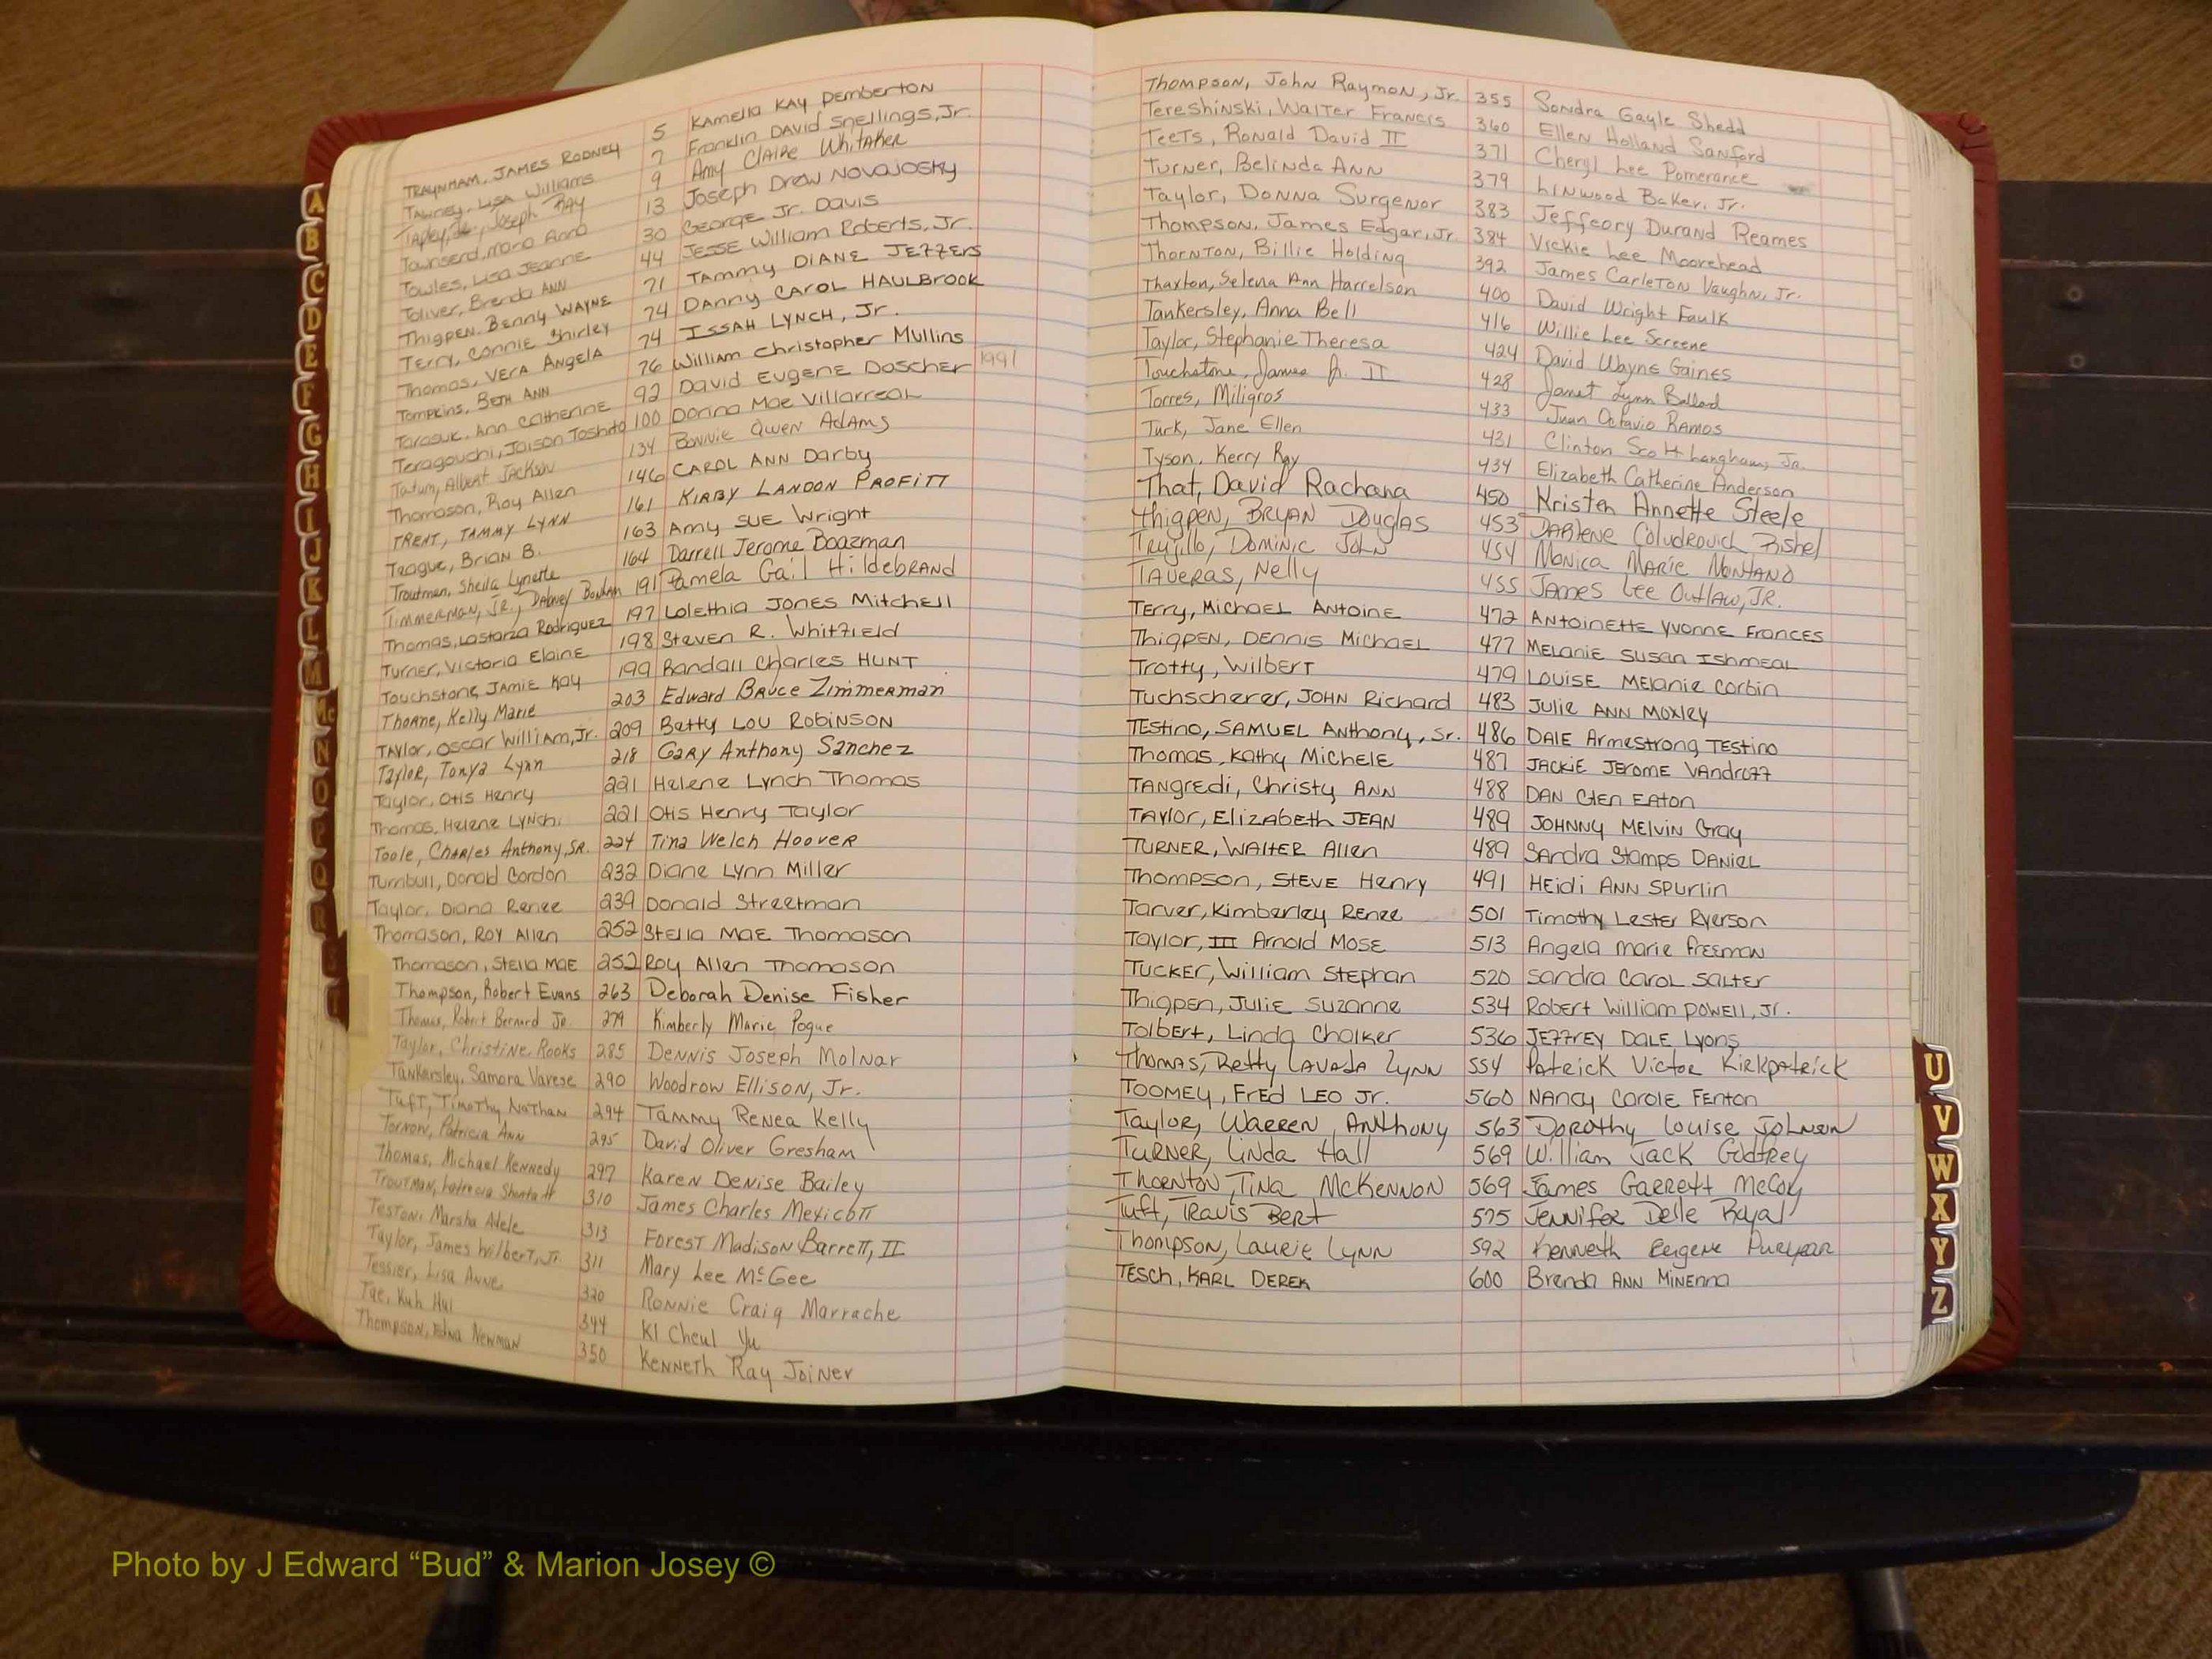 TRAYNHAM, JAMES RODNEY 5 KAMELIA KAY PEMBERTON
Tawney, Lisa Williams 7 Franklin DAVID Snellings, Jr.
Tapley, Joseph Ray 9 Amy CLAIRE Whitaker
Townsend, Maria Anna 13 Joseph Drew NOVAJOSKY
Towles, Lisa Jeanne 30 George Jr. Davis
Toliver, Brenda ANN 44 JESSE William Roberts, Jr.
Thigpen, Benny WAYNE 71 TAMMY DIANE JEFFERS
Terry, Connie Shirley 74 Danny CAROL HAULBROOK
Thomas, VERA ANGELA 74 ISSAH LYNCH, Jr.
Tompkins, BETH ANN 76 William Christopher Mullins
Tarasuk, Ann Catherine 92 David EUGENE Dascher 1991
Teragouchi, Jaison Toshito 100 Donna Mae Villarreal
Tatum, Albert Jackson 134 Bonnie Gwen Adams
Thomason, Roy Allen 146 CAROL ANN Darby
TRENT, TAMMY LYNN 161 KIRBY LANDON PROFITT
Teague, Brian B. 163 Amy SUE Wright
Troutman, Sheila Lynette 164 Darrell Jerome Boozman
TIMMERMAN, JR., Dabney Bonham 191 Pamela Gail HildebRAND
Thomas, Lastarza Rodriguez 197 Lolethia JONES Mitchell
Turner, Victoria Elaine 198 Steven R. Whitfield
Touchstone, JAMIE KAY 199 Randall Charles HUNT
Thorne, Kelly Marie 203 Edward Bruce Zimmerman
TAYLOR, OSCAR William, Jr. 209 Betty LOU ROBINSON
Taylor, Tonya Lynn 218 Gary Anthony Sanchez
Taylor, Otis Henry 221 Helene Lynch Thomas
Thomas, Helene LYNCH 221 Otis Henry Taylor
Toole, Charles Anthony, SR. 224 Tina Welch Hoover
Turnbull, Donald Gordon 232 Diane Lynn Miller
Taylor, Diana Renee 239 Donald Streetman
Thomason, ROY Allen 252 Stella MAE Thomason
Thomason, Stella MAE 252 Roy Allen Thomason
Thompson, Robert Evans 263 Deborah Denise Fisher
Thomas, Robert Bernard Jr. 279 Kimberly Marie Pogue
Taylor, Christine Rooks 285 Dennis Joseph Molnar
Tankersley, Samora Varese 290 Woodrow Ellison, Jr.
Tuft, Timothy Nathan 294 Tammy Renea Kelly
Tornow, Patricia Ann 295 David Oliver Gresham
Thomas, Michael Kennedy 297 Karen Denise Bailey
Troutman, 310 James Charles Mexicott
Teston, Marsha Adele 313 Forest Madison Barrett, II
Taylor, James Wilbert, Jr. 311 Mary Lee McGee
Tessier, Lisa Anne 320 Ronnie Craig Marrache
Tae, Kuh Hui 344 KI Cheul Yu
Thompson, Edna Newman 350 Kenneth Ray Joiner
Thompson, John Raymon, Jr. 355 Sondra Gayle Shedd
Tereshinski, Walter Francis 360 Ellen Holland Sanford
Teets, Ronald David II 371 Cheryl Lee Pomerance
Turner, Belinda Ann 379 Linwood Baker, Jr.
Taylor, Donna Surgenor 383 Jeffeory Durand Reames
Thompson, James Edgar, Jr. 384 Vickie Lee Moorehead
Thornton, Billie Holding 392 James Carleton Vaughn, Jr.
Thaxton, Selena Ann Harrelson 400 David Wright Faulk
Tankersley, Anna Bell 416 Willie Lee Screene
Taylor, Stephanie Theresa 424 David Wayne Gaines
Touchstone, James Jr. II 428 Janet Lynn Ballard
Torres, Miligros 433 Juan Octavio Ramos
Turk, Jane Ellen 431 Clinton Scott Langham, Jr.
Tyson, Kerry Ray 434 Elizabeth Catherine Anderson
That, David Rachana 450 Kristen Annette Steele
Thigpen, BRYAN Douglas 453 DARlene Coludrovich Fishel
Trujillo, Dominic John 454 Monica Marie Montano
TAVERAS, Nelly 455 James Lee Outlaw, JR.
Terry, Michael Antoine 472 Antoinette Yvonne Frances
Thigpen, DENNIS Michael 477 MELANIE SUSAN ISHMEAL
Trotty, Wilbert 479 LOUISE MELANIE Corbin
Tuchscherer, JOHN Richard 483 Julie ANN Moxley
TEStino, SAMUEL Anthony, Sr. 486 DALE Armestrong TEStino
Thomas, Kathy Michele 487 JACKIE JEROME VAndroff
TANgredi, Christy ANN 488 DAN Glen EAton
TAYlor, ElizABeth JEAN 489 JOHNNY MElvin Gray
TURNER, WALTER Allen 489 SAndra Stamps DANIEL
Thompson, STEVE Henry 491 HEidi ANN Spurlin
Tarver, Kimberley Renee 501 Timothy Lester Ryerson
Taylor, III Arnold MOSE 513 Angela marie Freeman
TUCKER, William Stephan 520 Sandra CAROL SALTER
Thigpen, JULIE SUZANNE 534 Robert William POWELL, Jr.
Tolbert, Linda Chalker 536 JEFFREY DALE Lyons
Thomas, Betty LaVada Lynn 554 Patrick Victor Kirkpatrick
TOOMEY, FrEd LEO Jr. 560 NANCY Carole Fenton
Taylor, WARREN ANthony 563 Dorothy Louise Johnson
TURNER, Linda Hall 569 William Jack Godfrey
Thornton, Tina McKennon 569 James Garrett McCoy
Tuft, Travis Bert 575 Jennifer Delle Royal
Thompson, Laurie Lynn 592 Kenneth Eugene Puryear
TESCH, KARL DEREK 600 Brenda ANN MINENNA
A
B
C
D
E
F
G
H
I
J
K
L
M
Mc
N
O
P
Q
R
S
T
U
V
W
X
Y
Z
Photo by J Edward “Bud” & Marion Josey ©